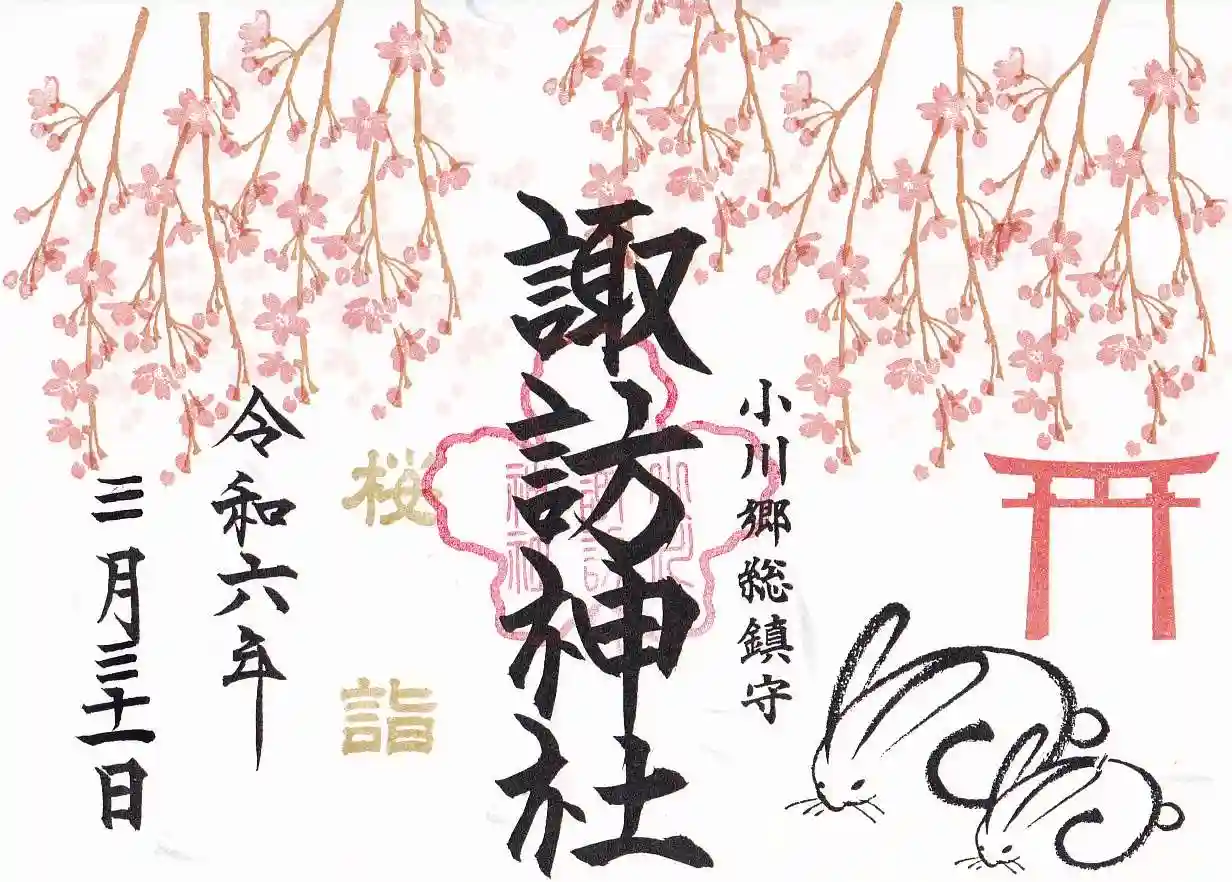 小川郷総鎮守
諏訪神社
桜詣
令和六年
三月三十一日